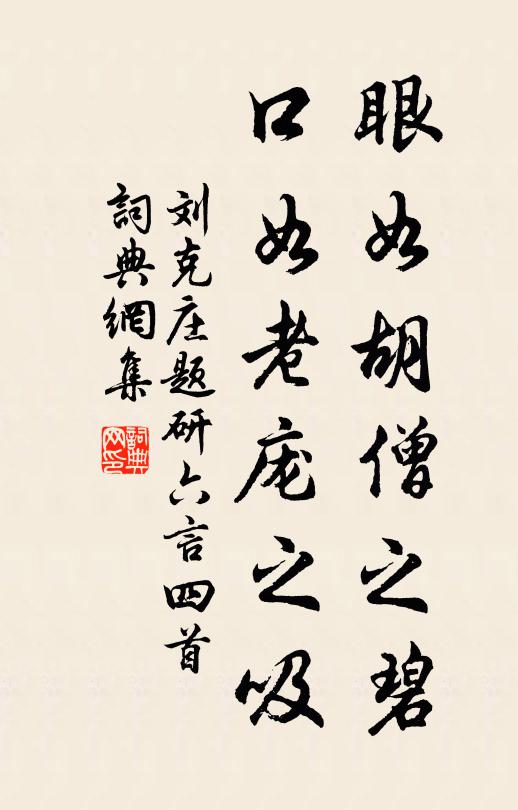 眼如胡僧之碧
口如老庞之吸
刘克庄题研六言四首
詞典網集
詞典网印